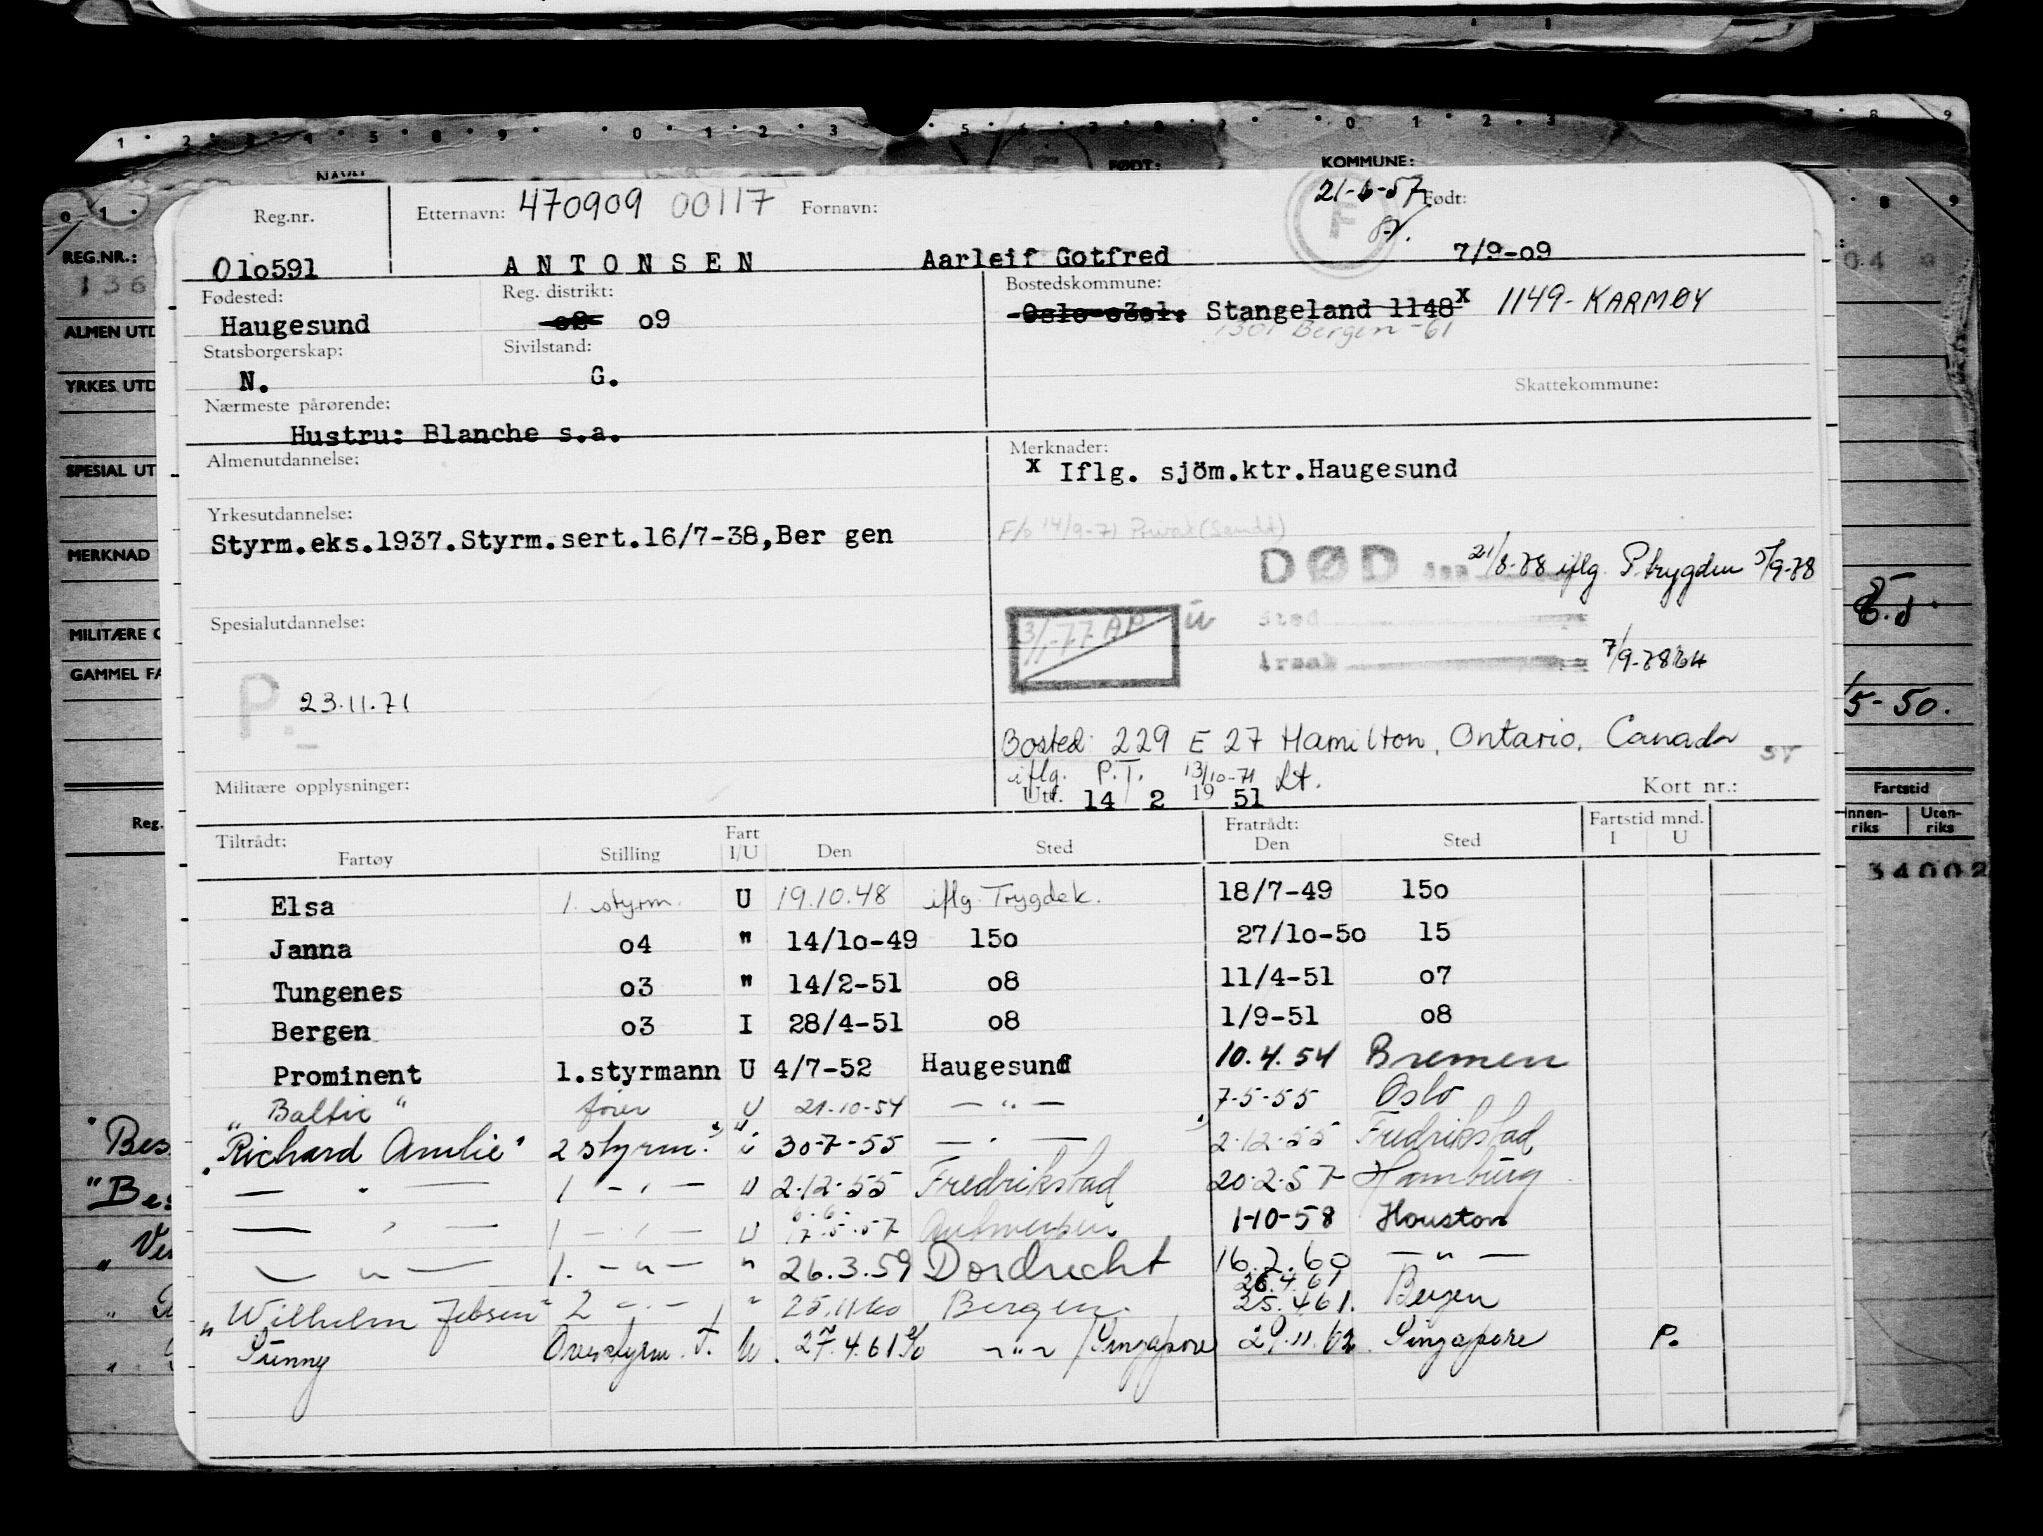 KOMMUNE:
Reg.nr. Etternavn: 470909 00117 Fornavn: 21-6-57 Født:
F
010591 ANTONSEN Aarleif Gotfred 7/9-09
Fødested: Reg. distrikt: Bostedskommune:
Haugesund o2 o9 Oslo o3o1. Stangeland 1148 x 1149-KARMØY
1301 Bergen -61
Statsborgerskap: Sivilstand:
N. G. Skattekommune:
Nærmeste pårørende:
Hustru: Blanche s.a.
Almenutdannelse: Merknader:
x Iflg. sjöm.ktr.Haugesund
Yrkesutdannelse:
Styrm.eks.1937.Styrm.sert.16/7-38,Ber gen
F/o 14/9-71 Privat (Sendt)
DØD den 21/8-78 iflg. P.trygden 5/9-78
Spesialutdannelse: sted
3/1-77 AP u
årsak 7/9-78
P. 23.11.71
Bosted: 229 E 27 Hamilton, Ontario, Canada
iflg. P.T. 13/10-71 Lt.
Militære opplysninger: Utf. 14 2 19 51 Kort nr.:
Tiltrådt: Fratrådt: Fartstid mnd.
Fartøy Stilling Fart I/U Den Sted Den Sted I U
Elsa 1. styrm. U 19.10.48 iflg. Trygdek. 18/7-49 15o
Janna o4 " 14/1o-49 15o 27/1o-5o 15
Tungenes o3 " 14/2-51 o8 11/4-51 o7
Bergen o3 I 28/4-51 o8 1/9-51 o8
Prominent 1.styrmann U 4/7-52 Haugesund 10.4.54 Bremen
"Baltic" fører U 21-10-54 — " — 7-5-55 Oslo
"Richard Amlie" 2 styrm. i 30-7-55 — " — 2-12-55 Fredrikstad
— " — 1 — " — U 2-12-55 Fredrikstad 20-2-57 Hamburg
— " — 1 — " — U 17-5-57 Antwerpen 1-10-58 Houston
— " — 1. — " — " 26.3.59 Dordrecht 16.2.60 — " —
26.4.61
"Wilhelm Jebsen" 2 — " — " 25.11.60 Bergen. 25.4.61. Bergen
Sunny Overstyrm. F. U. 27.4.61 — " — / Singapore 29.11.62. Singapore P.
REG.NR.:
136
ALMEN UTD
YRKES UTD
SPESIAL UT
MERKNAD
MILITÆRE O
GAMMEL FA
Reg.
5-50.
Fartstid
Innenriks Utenriks
34002